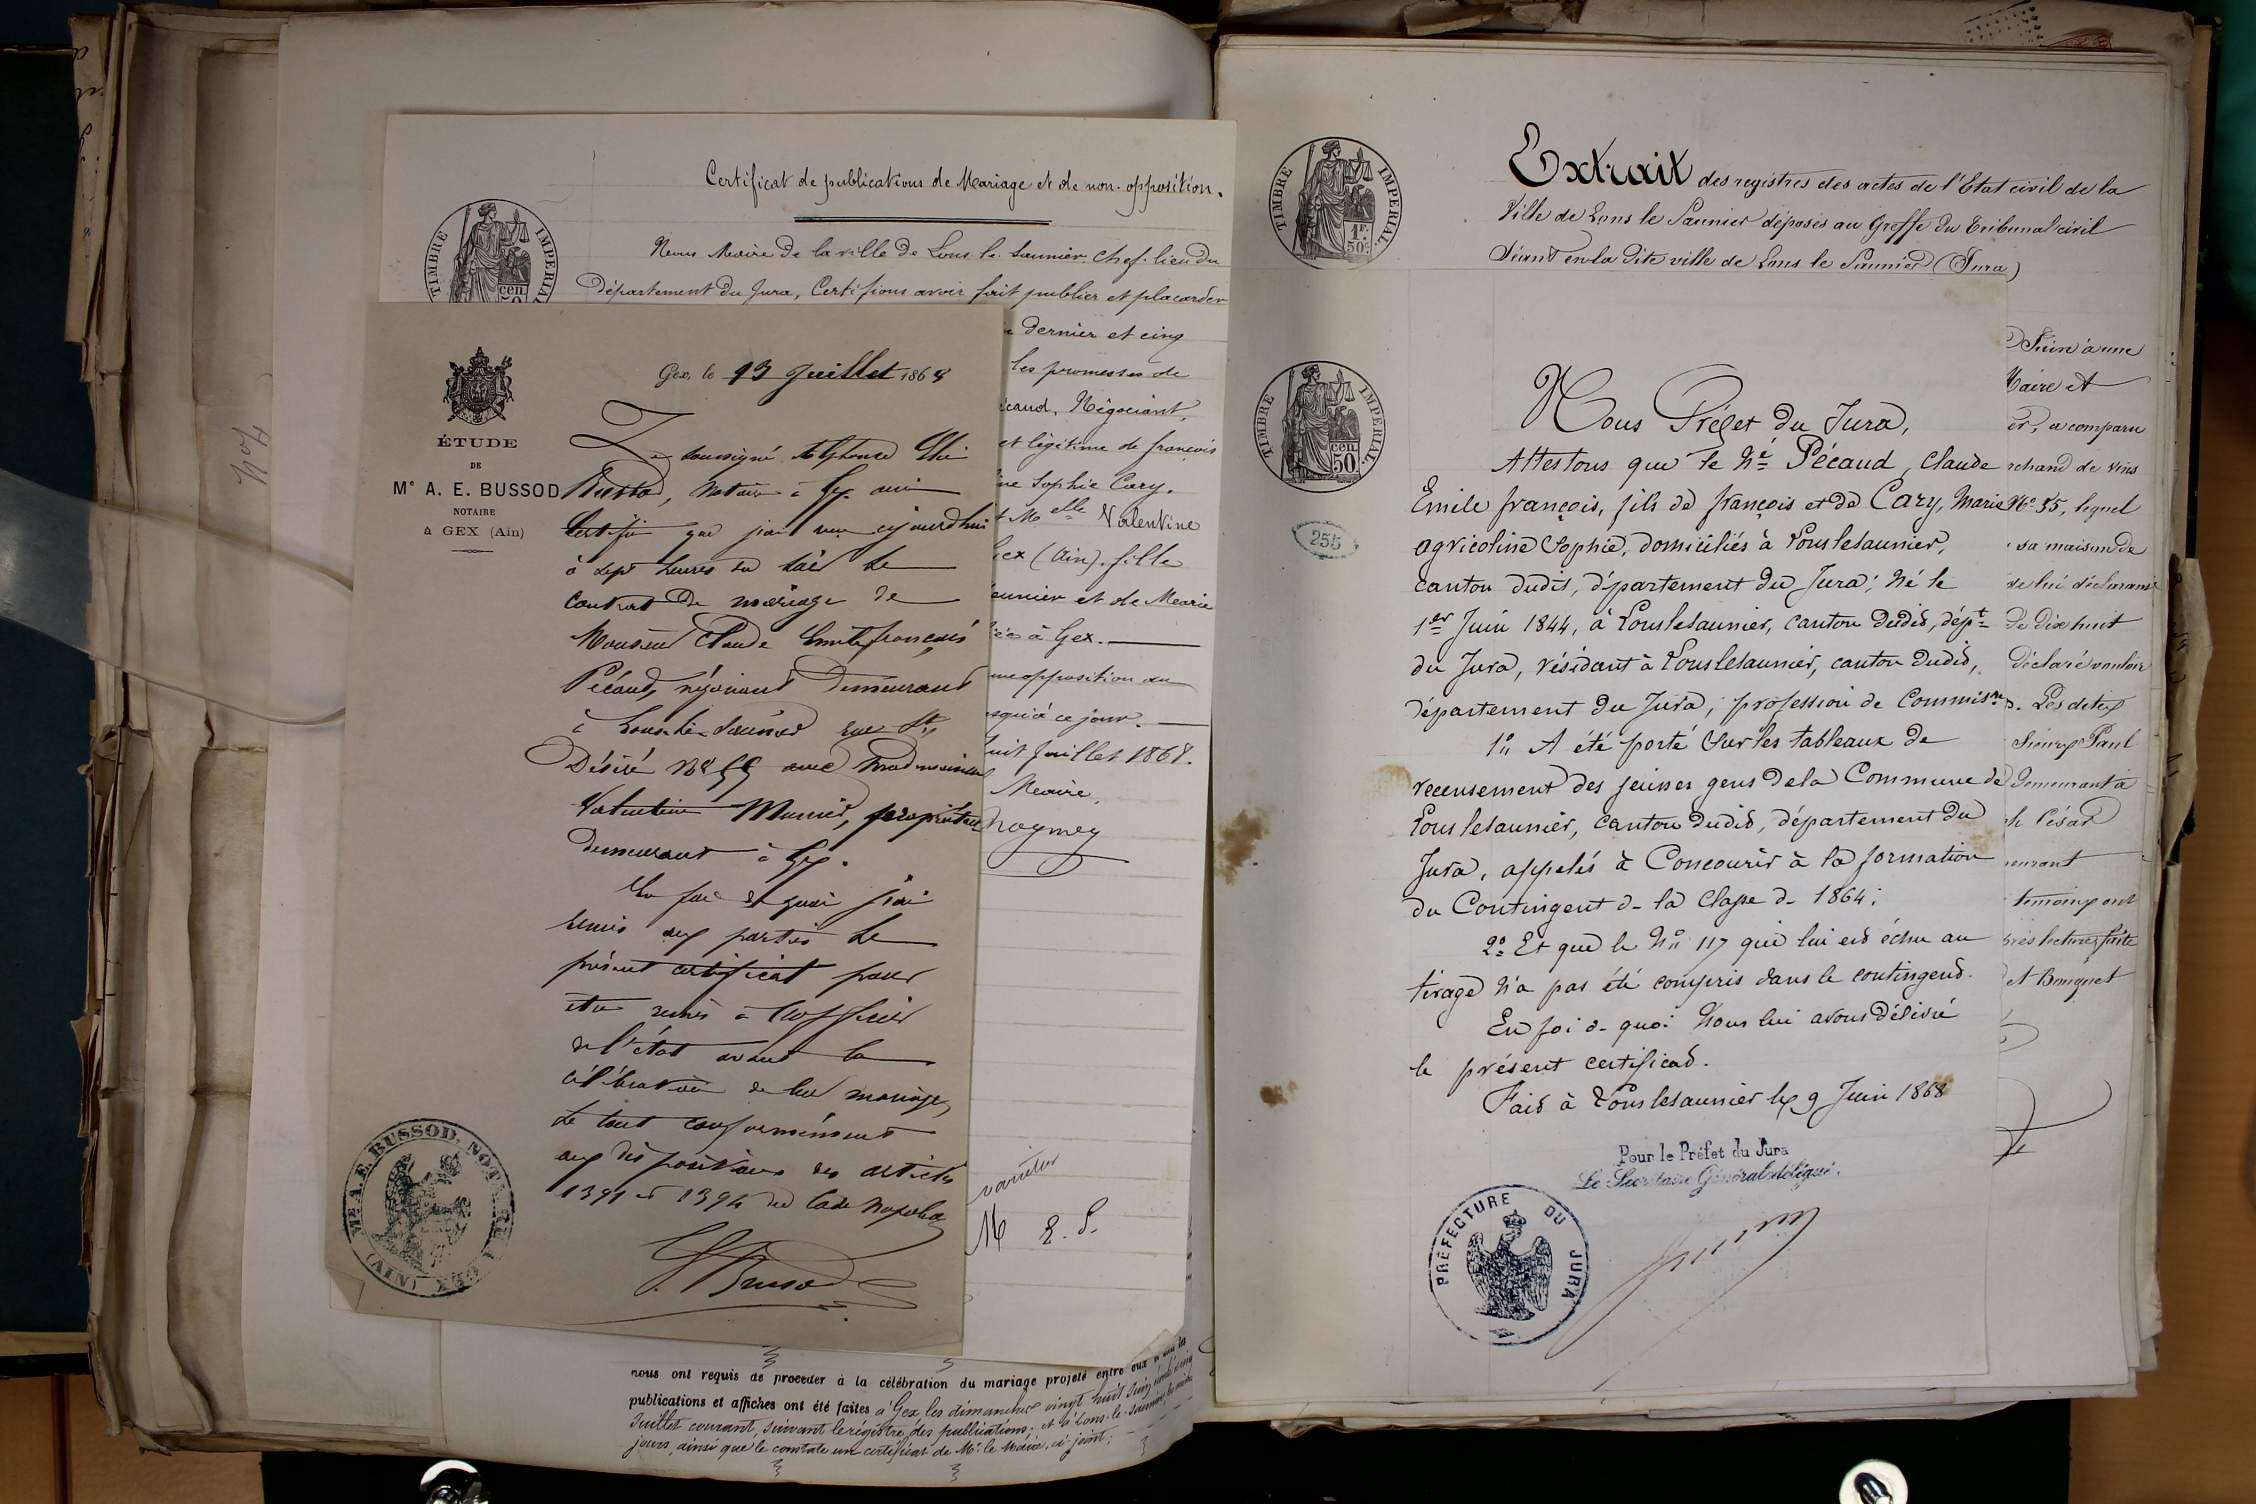 Certificat de publications de Mariage et de non-opposition.
TIMBRE IMPERIAL
cen
50
Nous Maire de la ville de Lons-le-Saunier, chef-lieu du
Département du Jura, Certifions avoir fait publier et placarder
dernier et cinq
les promesses de
écaud, Négociant,
et légitime de françois
ine Sophie Cary.
t Melle Valentine
Gex (Ain), fille
eunier et de Marie
iée à Gex.
une opposition au
squ'à ce jour.
uit Juillet 1868.
Maire,
M E. P.
Gex, le 13 Juillet 1868
ÉTUDE
DE
Me A. E. BUSSOD
NOTAIRE
à GEX (Ain)
Je soussigné Alphonse Elie
Bussod, notaire à Gex ain
Certifie que j'ai reçu aujourd'hui
à sept heures du soir le
contrat de mariage de
Monsieur Claude Emile françois
Pécaud, négociant demeurant
à Lons-le-Saunier rue St
Désiré No 55 avec Mademoiselle
Valentine Munier, propriétaire
demeurant à Gex.
En foi de quoi j'ai
remis aux parties le
présent certificat pour
être remis à l'officier
de l'état avant la
célébration de leur mariage,
Le tout conformément
aux dispositions des articles
1391 et 1394 du Code Napoléon
Bussod
Me A. E. BUSSOD, NOTAIRE À GEX (AIN)
nous ont requis de procéder à la célébration du mariage projeté entre eux
publications et affiches ont été faites à Gex, les dimanches vingt huit Juin,
Juillet courant, suivant le régistre des publications; et à Lons-le-Saunier, les mêmes
jours, ainsi que le constate un certificat de Mr. le Maire, ci-joint;
TIMBRE IMPERIAL.
1F.
50c
Extrait des registres des actes de l'Etat civil de la
Ville de Lons le Saunier déposés au Greffe du Tribunal civil
Séant en la dite ville de Lons le Saunier (Jura)
TIMBRE IMPERIAL
cen
50
255
Nous Préfet du Jura,
Attestons que le Né Pécaud, Claude
Emile françois, fils de françois et de Cary, Marie
agricoline Sophie, domiciliés à Lonslesaunier,
canton dudit, département du Jura; né le
1er Juin 1844, à Lonslesaunier, canton dudit, dépt
du Jura, résidant à Lonslesaunier, canton dudit,
département du Jura; profession de Commisre
1o A été porté sur les tableaux de
recensement des jeunes gens de la Commune de
Lonslesaunier, canton dudit, département du
Jura, appelés à Concourir à la formation
du Contingent de la Classe de 1864;
2o Et que le No 117 qui lui est échu au
tirage n'a pas été compris dans le contingent.
En foi de quoi Nous lui avons délivré
le présent certificat.
Fait à Lonslesaunier le 9 Juin 1868
Pour le Préfet du Jura
Le Secrétaire Général délégué.
PRÉFECTURE DU JURA
Juin à une
Maire et
er, a comparu
rchand de vins
No 55, lequel
sa maison de
de lui déclarant
de dix huit
déclaré vouloir
Les dites
Sieurs Paul
Demeurant à
h César
eurant
témoins ont
près lecture faite
et Bouquet